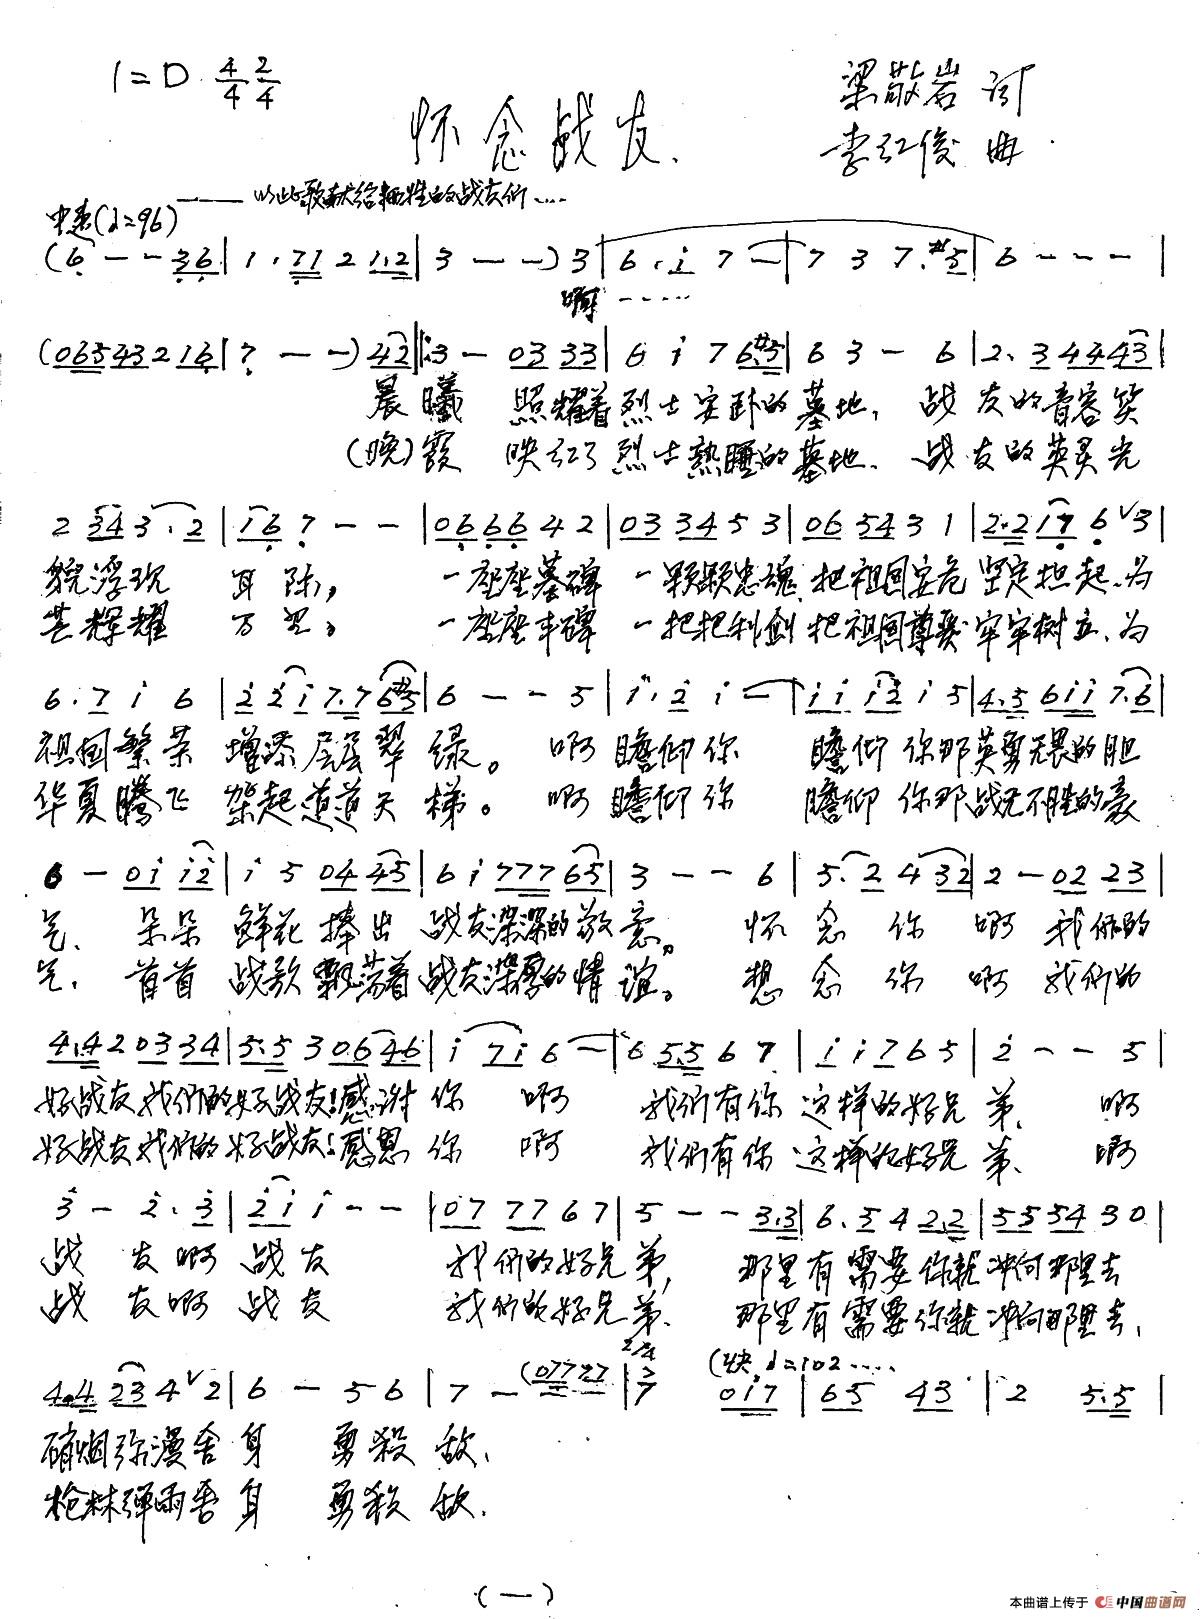 1=D 4/4 2/4
梁敬岩 词
怀念战友
李红俊 曲
——以此歌献给牺牲的战友们....
中速(♩=96)
(6 - - 36 | 1 . 77 2 1.2 | 3 - - ) 3 | 6 . i 7 - | 7 3 7 . #5 | 6 - - - |
啊 ......
(06543216 | 7 - - ) 42 ‖: 3 - 03 33 | 6 i 7 6.#5 | 6 3 - 6 | 2. 3 4 4 43 |
晨曦 照耀着烈士安卧的墓地, 战友的音容笑
(晚)霞 映红了烈士熟睡的墓地. 战友的英灵光
2 34 3 . 2 | i6 7 - - | 06 66 4 2 | 03 34 5 3 | 06 54 3 1 | 2.2 17 6 ∨3 |
貌浮现 耳际, 一座座墓碑 一颗颗忠魂 把祖国安危 坚定担起.为
芒辉耀 万里。 一座座丰碑 一把把利剑 把祖国尊严 牢牢树立.为
6 . 7 i 6 | 2 2 i 7.7 6#5 | 6 - - 5 | i . 2 i - | i i i2 i 5 | 4.5 6ii 7.6 |
祖国繁荣 增添层层翠绿。 啊瞻仰你 瞻仰你那英勇无畏的胆
华夏腾飞 架起道道天梯。 啊瞻仰你 瞻仰你那战无不胜的豪
6 - 0i i2 | i 5 04 45 | 6 i 777 65 | 3 - - 6 | 5. 2 4 32 | 2 - 02 23 |
气. 朵朵鲜花捧出战友深深的敬意。 怀念你 啊我们的
气. 首首战歌飘荡着战友深厚的情谊。 想念你 啊我们的
4.42 0334 | 5.5 3 0646 | i 7i 6 - | 6 5.5 6 7 | i i 7 6 5 | 2 - - 5 |
好战友我们的好战友!感谢你 啊 我们有你这样的好兄弟. 啊
好战友我们的好战友!感恩你 啊 我们有你这样的好兄弟. 啊
3 - 2 . 3 | 2i i - - | 07 77 6 7 | 5 - - 3.3 | 6. 5 4 2.2 | 55 54 3 0 |
战友啊战友 我们的好兄弟, 那里有需要你就冲向那里去
战友啊战友 我们的好兄弟. 那里有需要你就冲向那里去,
2/4 (快 ♩=102 ....
4.4 23 4 ∨2 | 6 - 5 6 | 7 - (07777 | 7 0i7 | 65 43 | 2 5.5 |
硝烟弥漫舍身 勇殺敌.
枪林弹雨舍身 勇殺敌.
(一)
本曲谱上传于 中国曲谱网